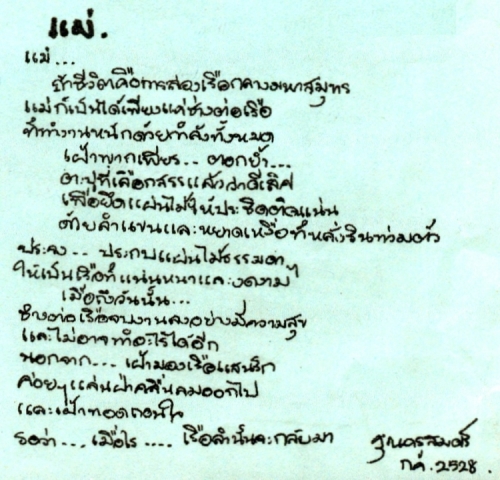 แม่.
แม่...
ถ้าชีวิตคือการล่องเรือกลางมหาสมุทร
แม่ก็เป็นได้เพียงแค่ช่างต่อเรือ
ที่ทำงานหนักด้วยกำลังทั้งหมด
เฝ้าพากเพียร.. ตอกย้ำ...
ตะปูที่เลือกสรรแล้วว่าดีเลิศ
เพื่อยึดแผ่นไม้ให้ประชิดติดแน่น
ด้วยลำแขนและหยาดเหงื่อที่หลั่งรินท่วมตัว
ประจง... ประกบแผ่นไม้ธรรมดา
ให้เป็นเรือที่แน่นหนาและงดงาม
เมื่อถึงวันนั้น...
ช่างต่อเรือจบงานลงอย่างมีความสุข
และไม่อาจทำอะไรได้อีก
นอกจาก... เฝ้ามองเรือแสนรัก
ค่อยๆแล่นฝ่าคลื่นลมออกไป
และเฝ้าทอดถอนใจ
รอว่า... เมื่อไร.... เรือลำนั้นจะกลับมา
กค. 2528.